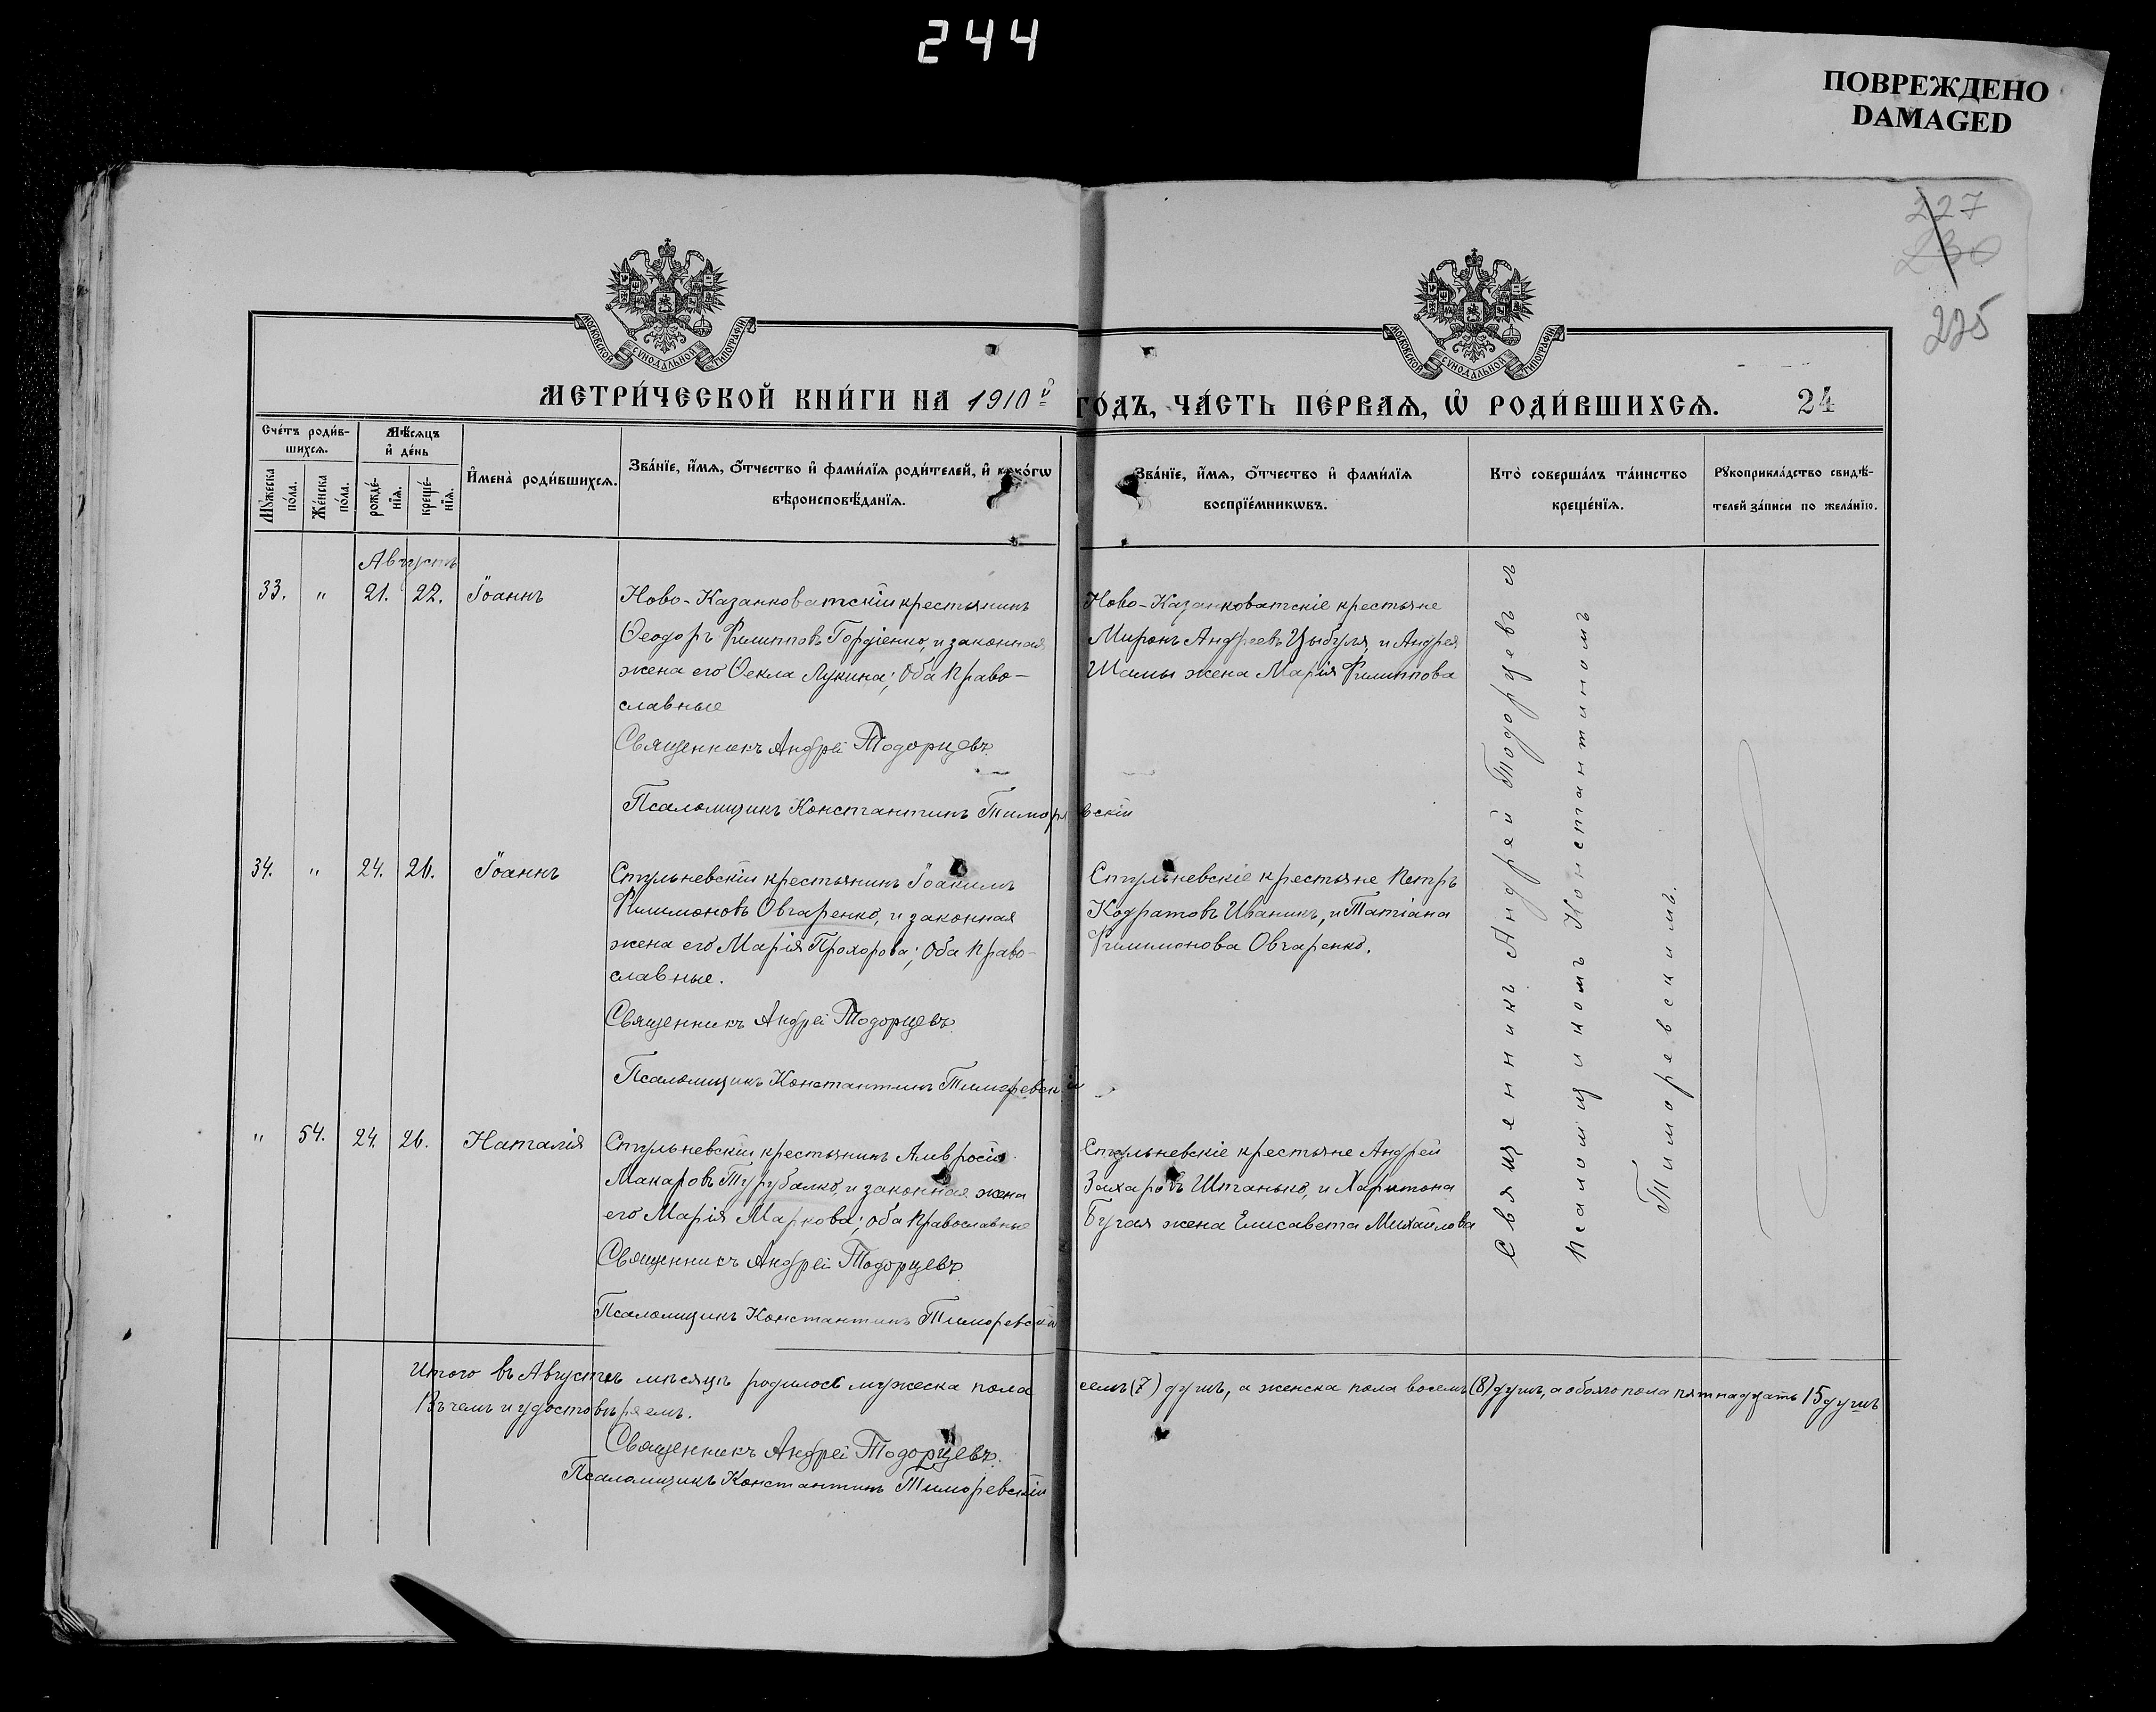 244
ПОВРЕЖДЕНО
DAMAGED
227
230
225
МОСКОВСКОЙ СУНОДАЛЬНОЙ ТИПОГРАФІИ
МОСКОВСКОЙ СУНОДАЛЬНОЙ ТИПОГРАФІИ
МЕТРИ́ЧЕСКОЙ КНИ́ГИ НА 1910й ГО́ДЪ, ЧА́СТЬ ПЕ́РВАѦ, Ѡ РОДИ́ВШИХСѦ. 24
Сче́тъ роди́в-
шихсѧ.
Мꙋ́жеска по́ла.
Же́нска по́ла.
Мѣ́сѧцъ
и҆ де́нь
рожде́-
нїѧ.
креще́-
нїѧ.
И҆мена̀ роди́вшихсѧ.
Зва́нїе, и҆́мѧ, ѻ҆́тчество и҆ фами́лїѧ роди́телей, и҆ како́гѡ
вѣроисповѣ́данїѧ.
Зва́нїе, и҆́мѧ, ѻ҆́тчество и҆ фами́лїѧ
воспрїе́мникѡвъ.
Кто̀ соверша́лъ та́инство
креще́нїѧ.
Рꙋкоприкла́дство свидѣ́-
телей за́писи по жела́нїю.
Августъ
33. " 21. 22. Іоаннъ
Ново-Казанковатскій крестьянинъ
Ѳеодоръ Филипповъ Гордіенко, и законная
жена его Ѳекла Лукина; Оба Право-
славные
Священникъ Андрей Тодорцевъ.
Псаломщикъ Константинъ Тиморевскій
Ново-Казанковатскіе крестьяне
Миронъ Андреевъ Цыбуля, и Андрея
Шамы жена Марія Филиппова
34. " 24. 26. Іоаннъ
Стульневскій крестьянинъ Іоакимъ
Филимоновъ Овчаренко, и законная
жена его Марія Прохорова; Оба Право-
славные.
Священникъ Андрей Тодорцевъ.
Псаломщикъ Константинъ Тиморевскій
Стульневскіе крестьяне Петръ
Кодратовъ Иваникъ, и Татіана
Филимонова Овчаренко.
" 54. 24. 26. Наталія
Стульневскій крестьянинъ Амвросій
Макаровъ Турубалко, и законная жена
его Марія Маркова; оба Православные
Священникъ Андрей Тодорцевъ
Псаломщикъ Константинъ Тиморевскій
Стульневскіе крестьяне Андрей
Захаровъ Штанько, и Харитона
Бугая жена Елисавета Михайлова
Священникъ Андрей Тодорцевъ съ
Псаломщикомъ Константиномъ
Тиморевскимъ.
Итого въ Августѣ мѣсяцѣ родилось мужеска пола семь (7) душъ, а женска пола восемь (8) душъ, а обоего пола пятнадцать 15 душъ
Въ чемъ и удостовѣряемъ.
Священникъ Андрей Тодорцевъ.
Псаломщикъ Константинъ Тиморевскій